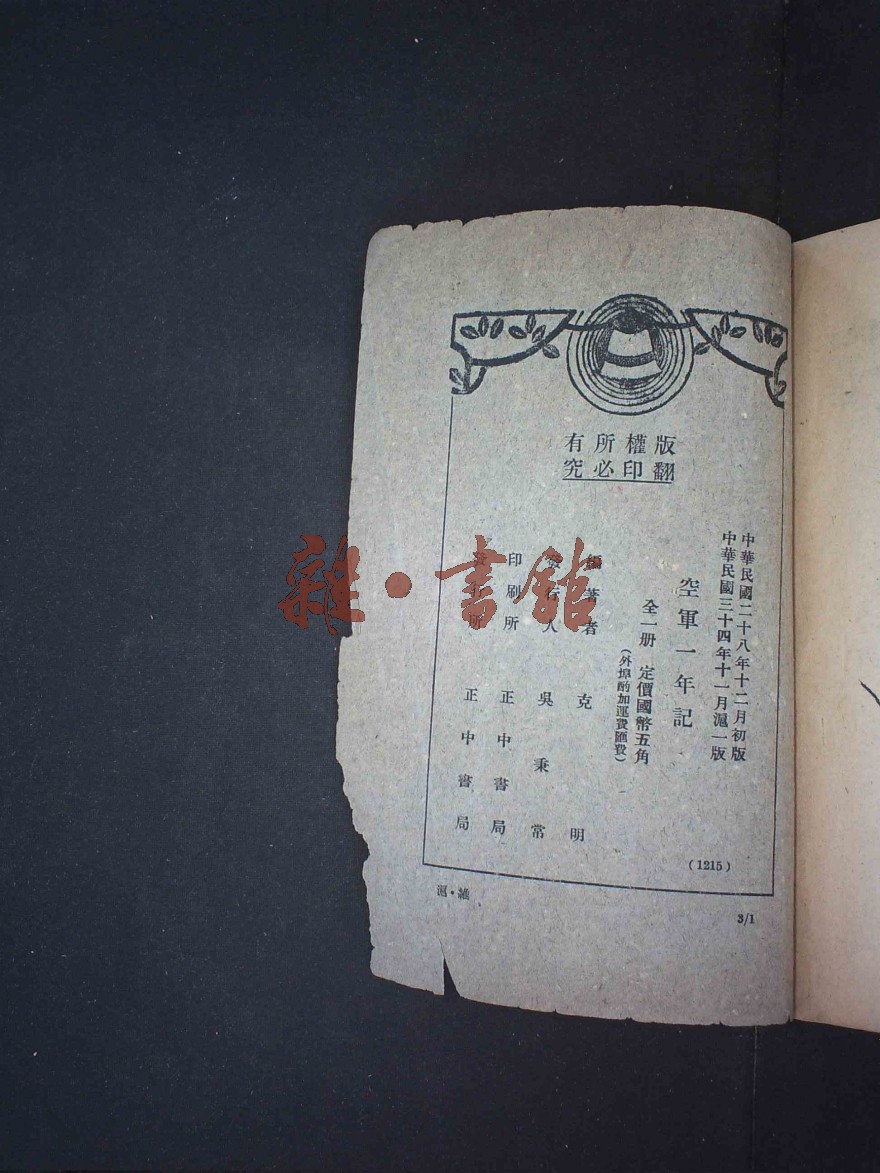 版權所有
翻印必究
中華民國二十八年十二月初版
中華民國三十四年十一月滬一版
空軍一年記
全一册 定價國幣五角
(外埠酌加運費匯費)
編著者 克明
發行人 吳秉常
印刷所 正中書局
發行所 正中書局
(1215)
滬·維
3/1
雜·書館